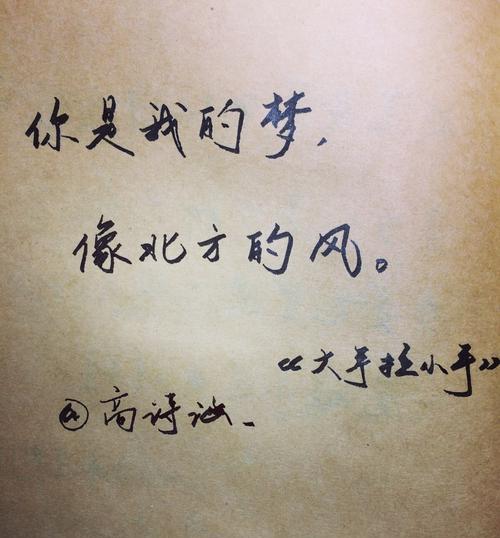 你是我的梦,
像北方的风。
《大手拉小手》
@高诗涵-